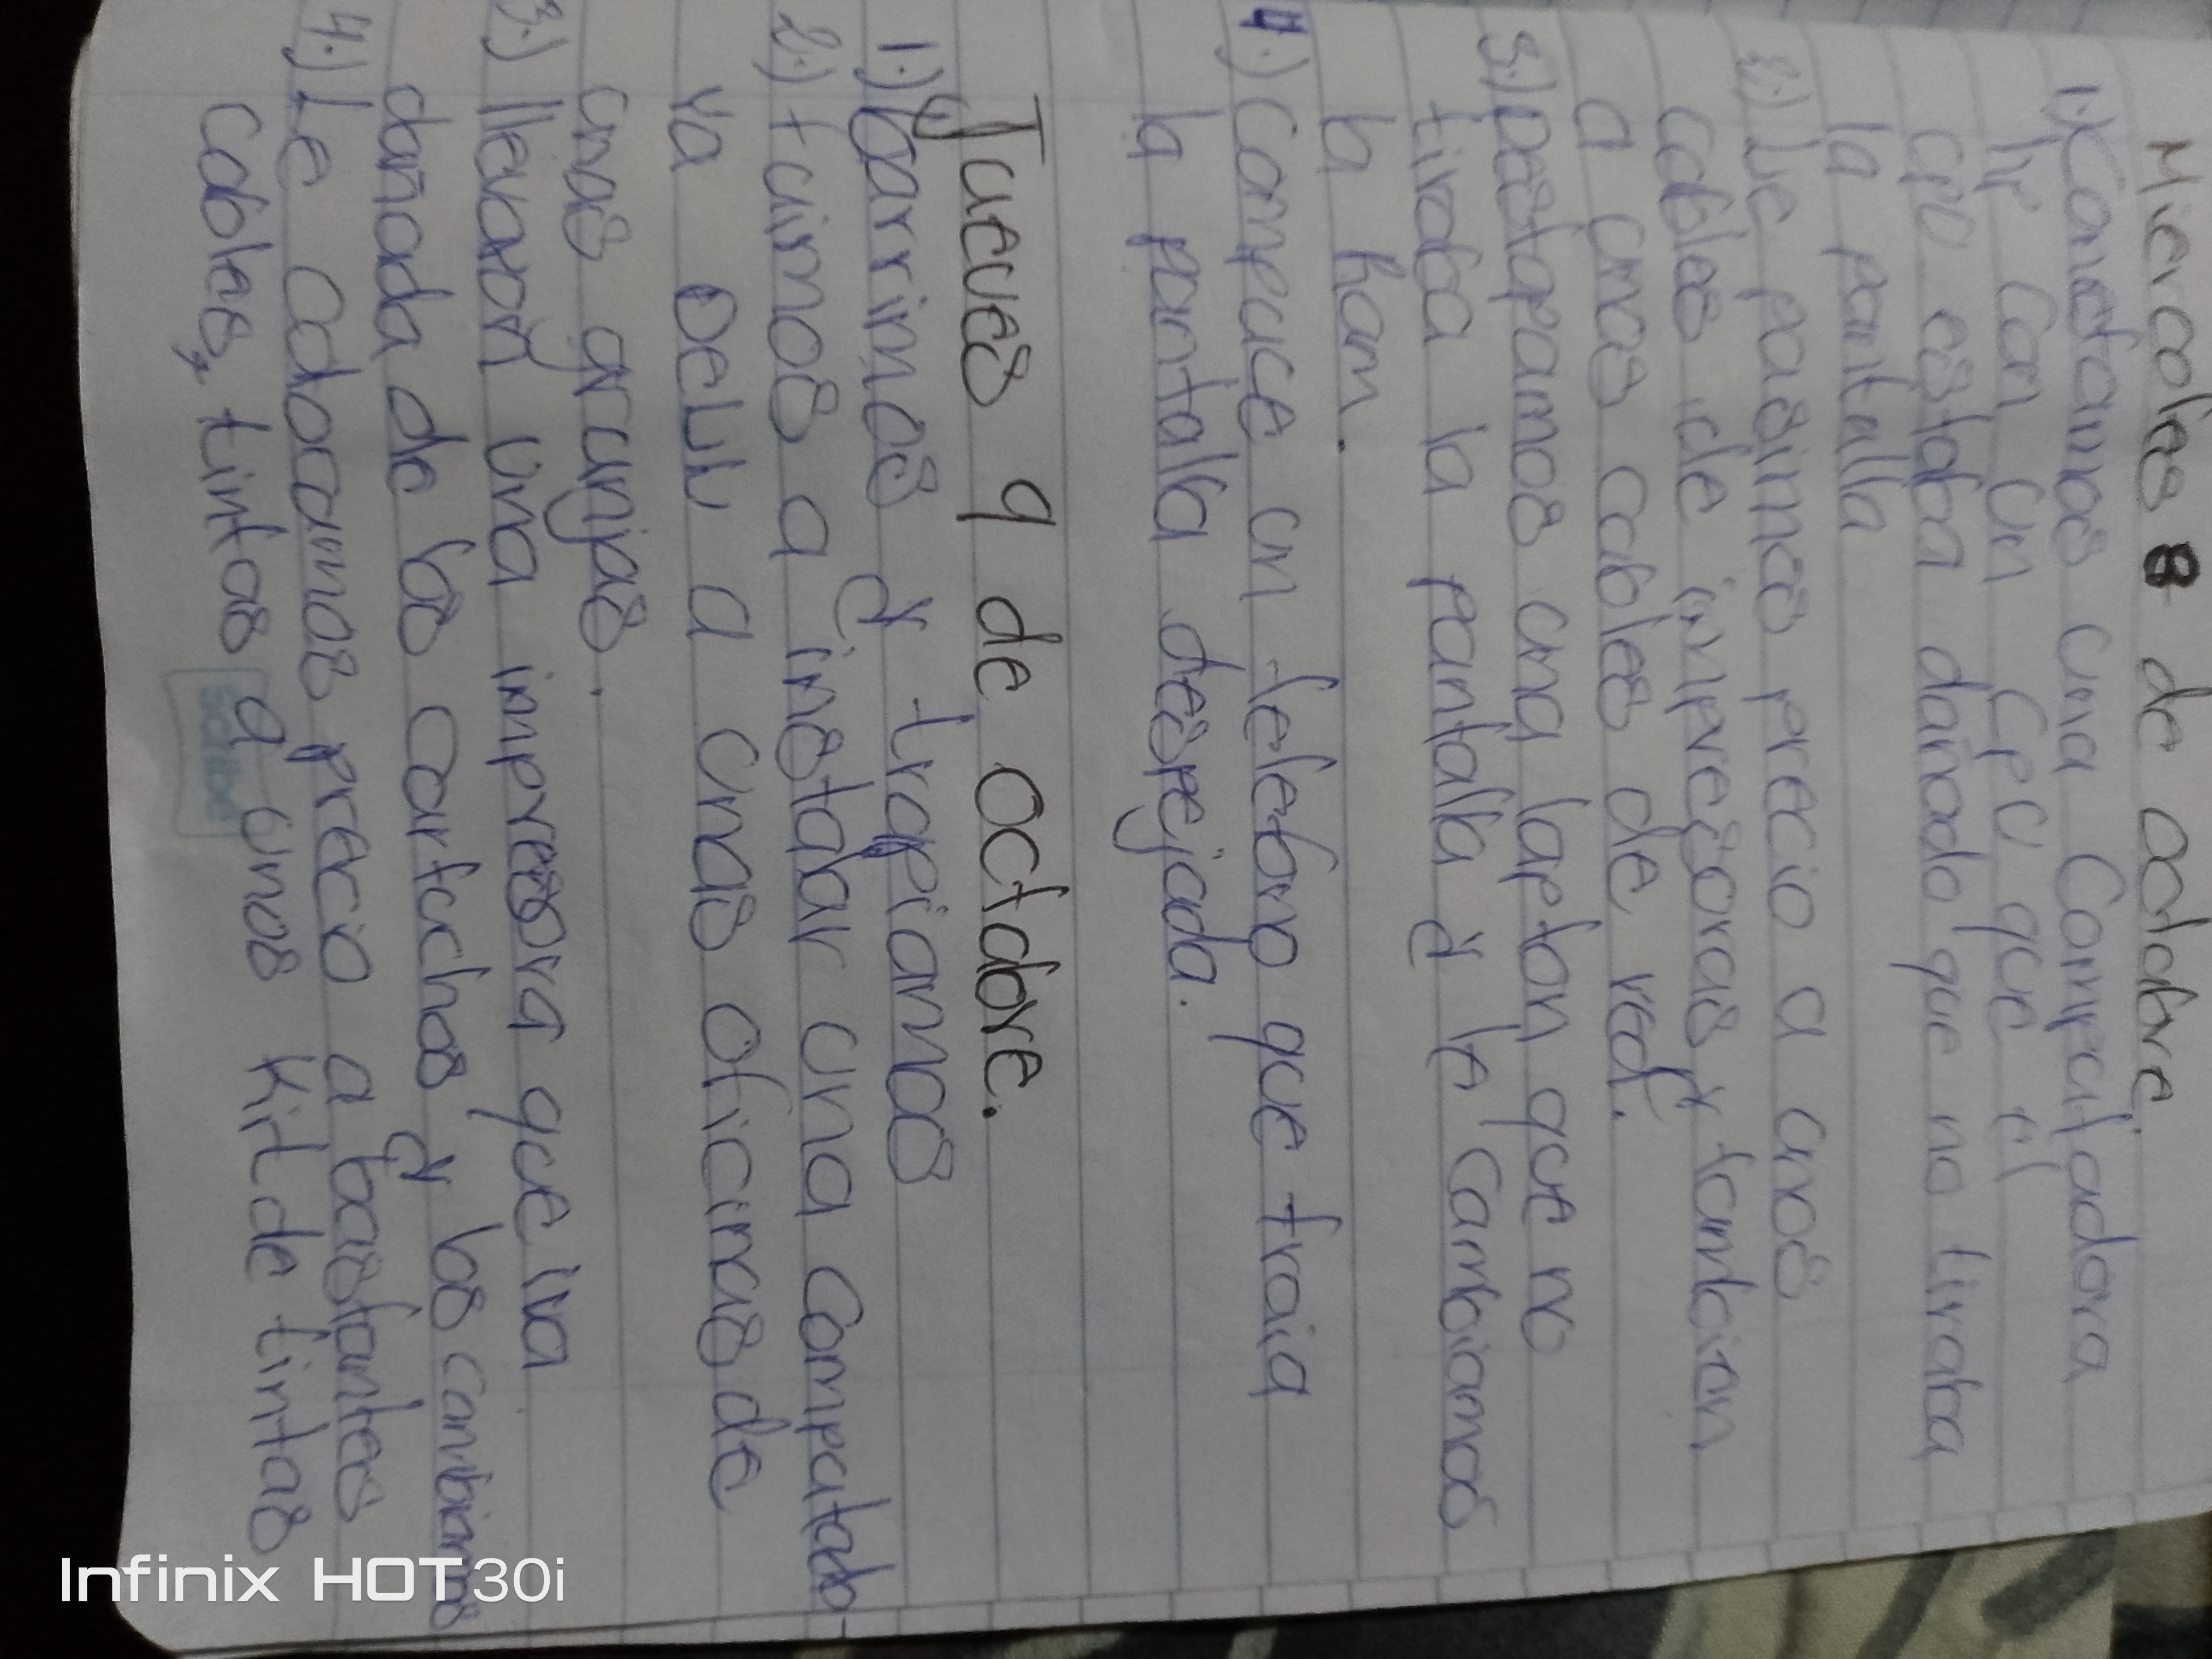 Miercoles 8 de octubre.
1.) Conetamos una Computadora
hp con un cpu que el
cpu estaba dañado que no tiraba
la pantalla
2.) Le pasimos precio a unos
cables de impresoras y tambien
a unos cables de red.
3.) Destapamos una lapton que no
tiraba la pantalla y le cambiamos
la ram.
4.) Compuce un telefono que traia
la pantalla despejada.
Jueves 9 de octubre.
1.) barrimos y trapiamos
2.) fuimos a instalar una computado-
ra DELL a unas oficinas de
unas granjas.
3.) llevaron una impresora que iva
dañada de los cartuchos y los cambiamos
4.) Le colocamos precio a bastantes
cables, tintas a unos kit de tintas
scribe
Infinix HOT 30i